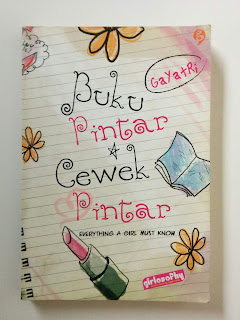 Gayatri
Buku
Pintar
Cewek
Pintar
EVERYTHING A GIRL MUST KNOW
girlosophy